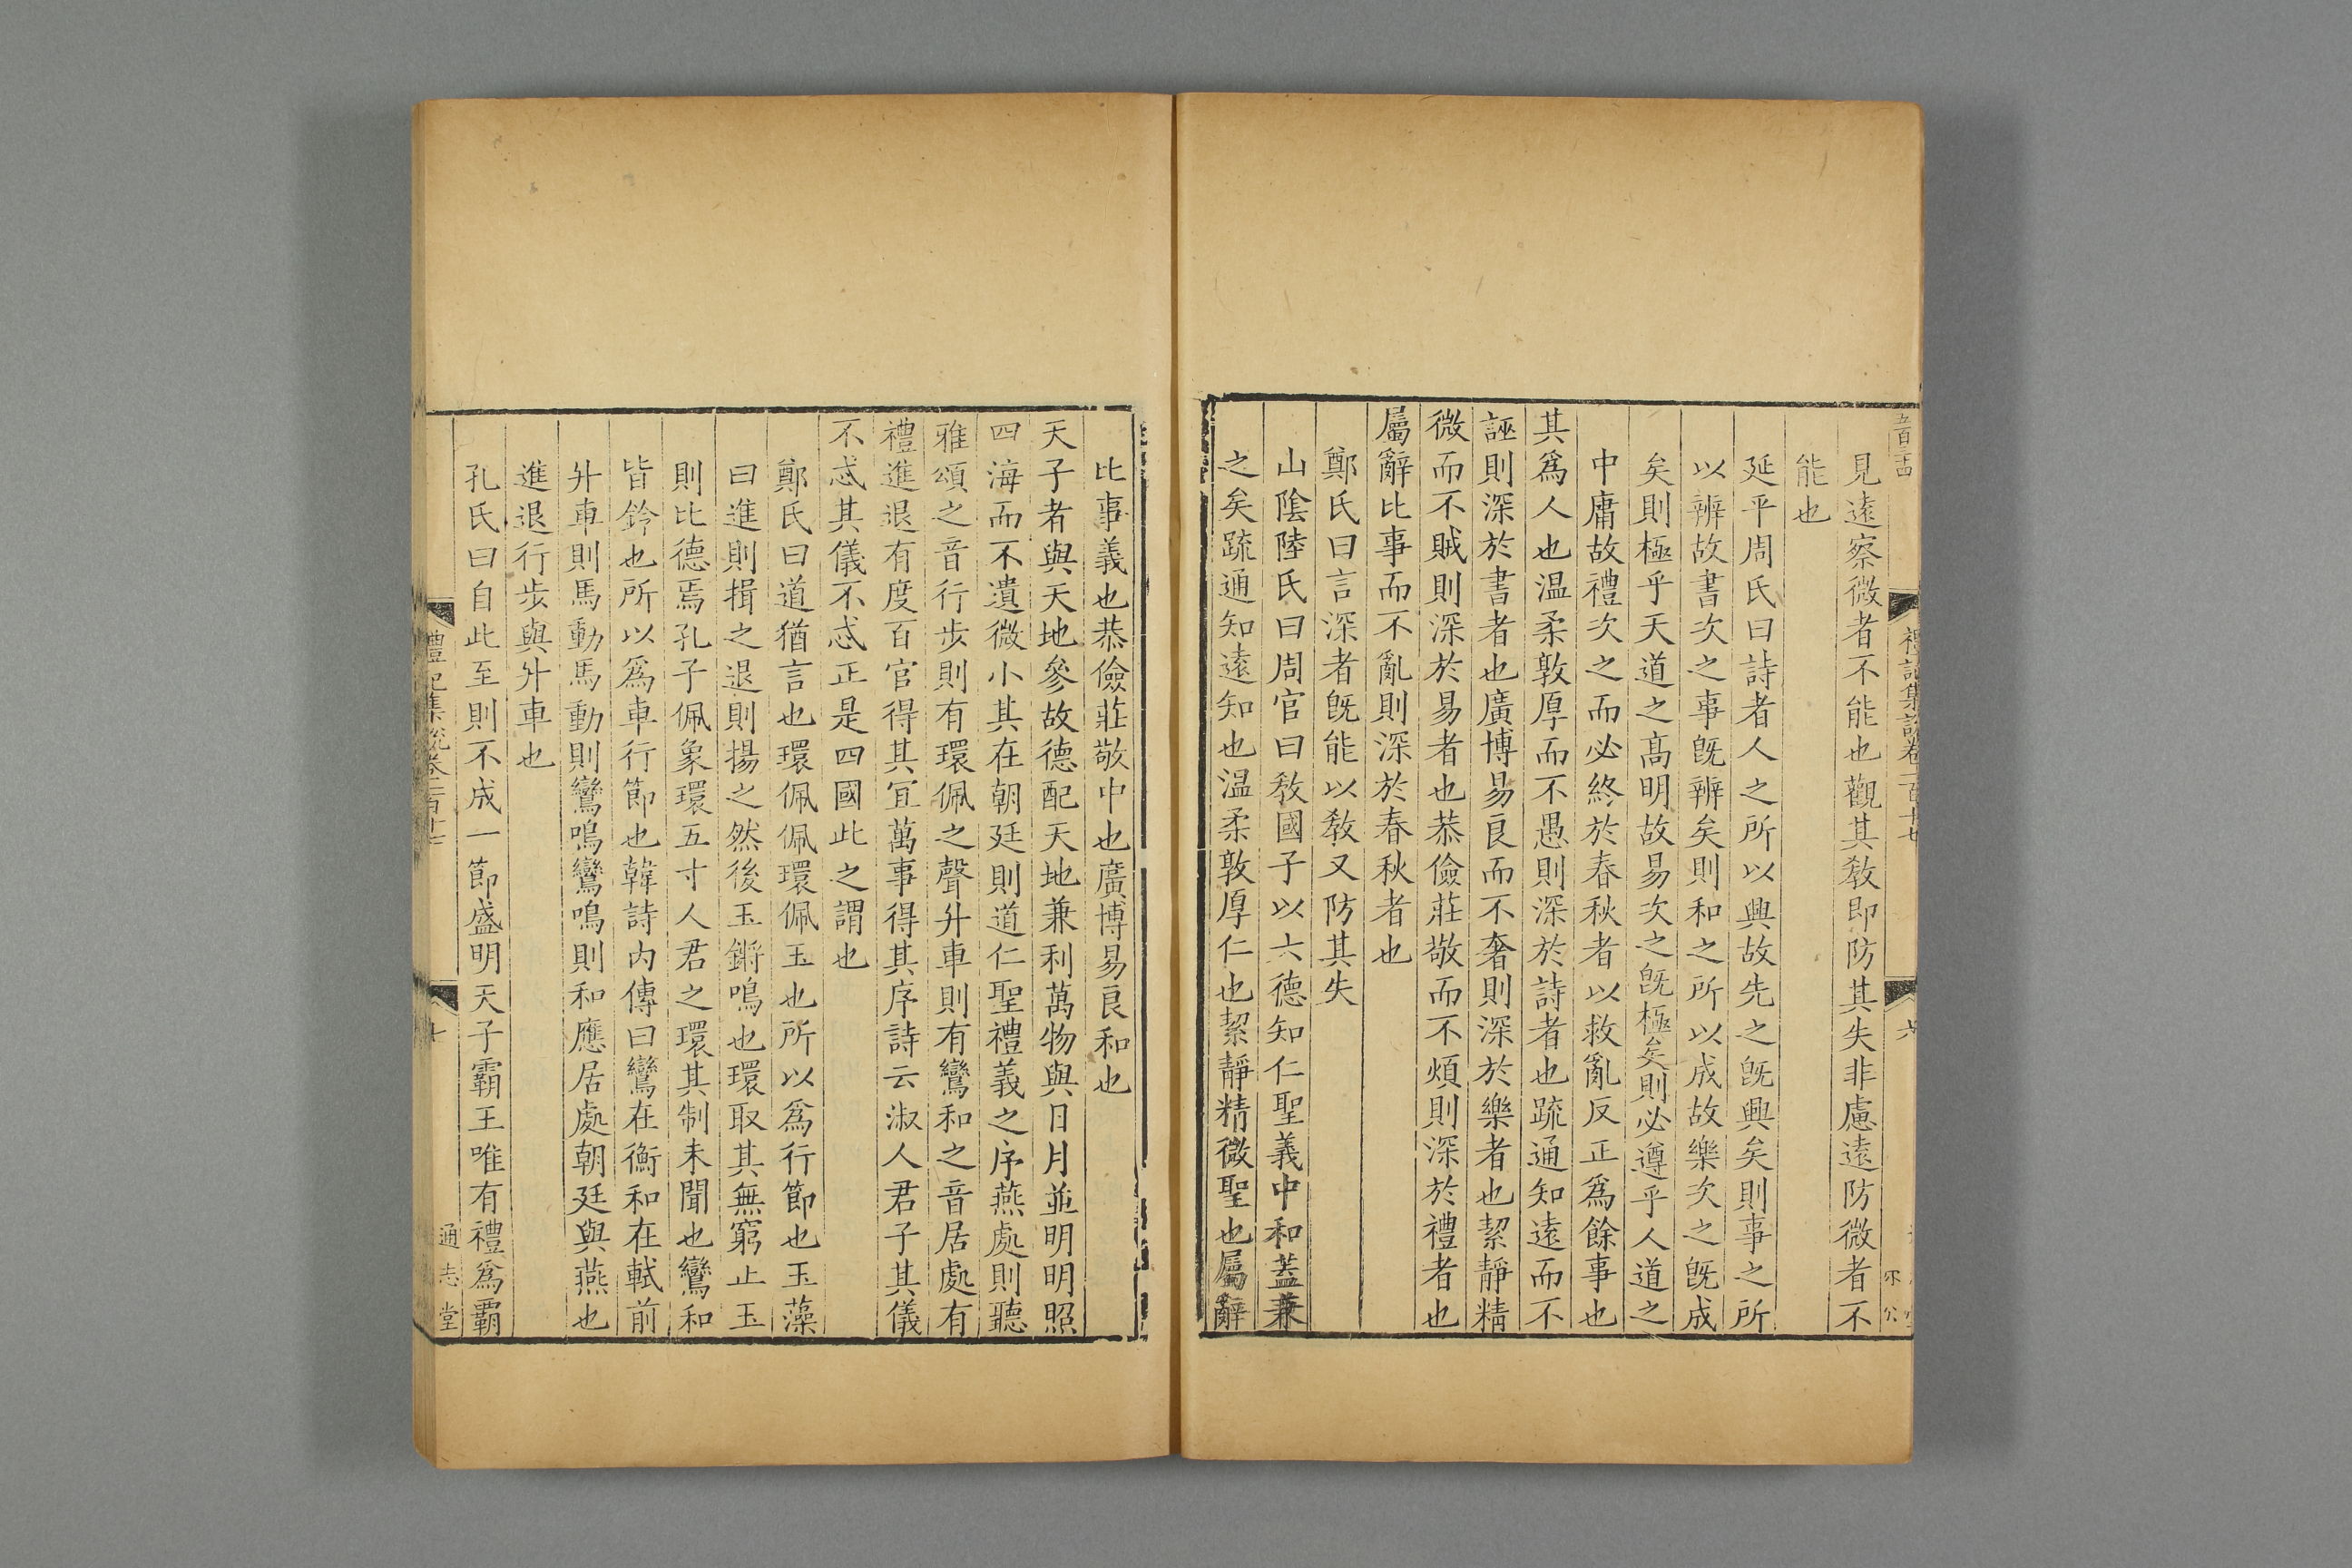 五百三十四
見遠察微者不能也觀其敎即防其失非慮遠防微者不
能也
延平周氏曰詩者人之所以興故先之旣興矣則事之所
以辨故書次之事旣辨矣則和之所以成故樂次之旣成
矣則極乎天道之高明故易次之旣極矣則必遵乎人道之
中庸故禮次之而必終於春秋者以救亂反正爲餘事也
其爲人也温柔敦厚而不愚則深於詩者也疏通知遠而不
誣則深於書者也廣博易良而不奢則深於樂者也絜靜精
微而不賊則深於易者也恭儉莊敬而不煩則深於禮者也
屬辭比事而不亂則深於春秋者也
鄭氏曰言深者旣能以敎又防其失
山陰陸氏曰周官曰敎國子以六德知仁聖義中和蓋兼
之矣疏通知遠知也温柔敦厚仁也絜靜精微聖也屬辭
比事義也恭儉莊敬中也廣博易良和也
天子者與天地參故德配天地兼利萬物與日月並明明照
四海而不遺微小其在朝廷則道仁聖禮義之序燕處則聽
雅頌之音行步則有環佩之聲升車則有鸞和之音居處有
禮進退有度百官得其宜萬事得其序詩云淑人君子其儀
不忒其儀不忒正是四國此之謂也
鄭氏曰道猶言也環佩佩環佩玉也所以爲行節也玉藻
曰進則揖之退則揚之然後玉鏘鳴也環取其無窮止玉
則比德焉孔子佩象環五寸人君之環其制未聞也鸞和
皆鈴也所以爲車行節也韓詩內傳曰鸞在衡和在軾前
升車則馬動馬動則鸞鳴鸞鳴則和應居處朝廷與燕也
進退行步與升車也
孔氏曰自此至則不成一節盛明天子霸王唯有禮爲霸
通志堂